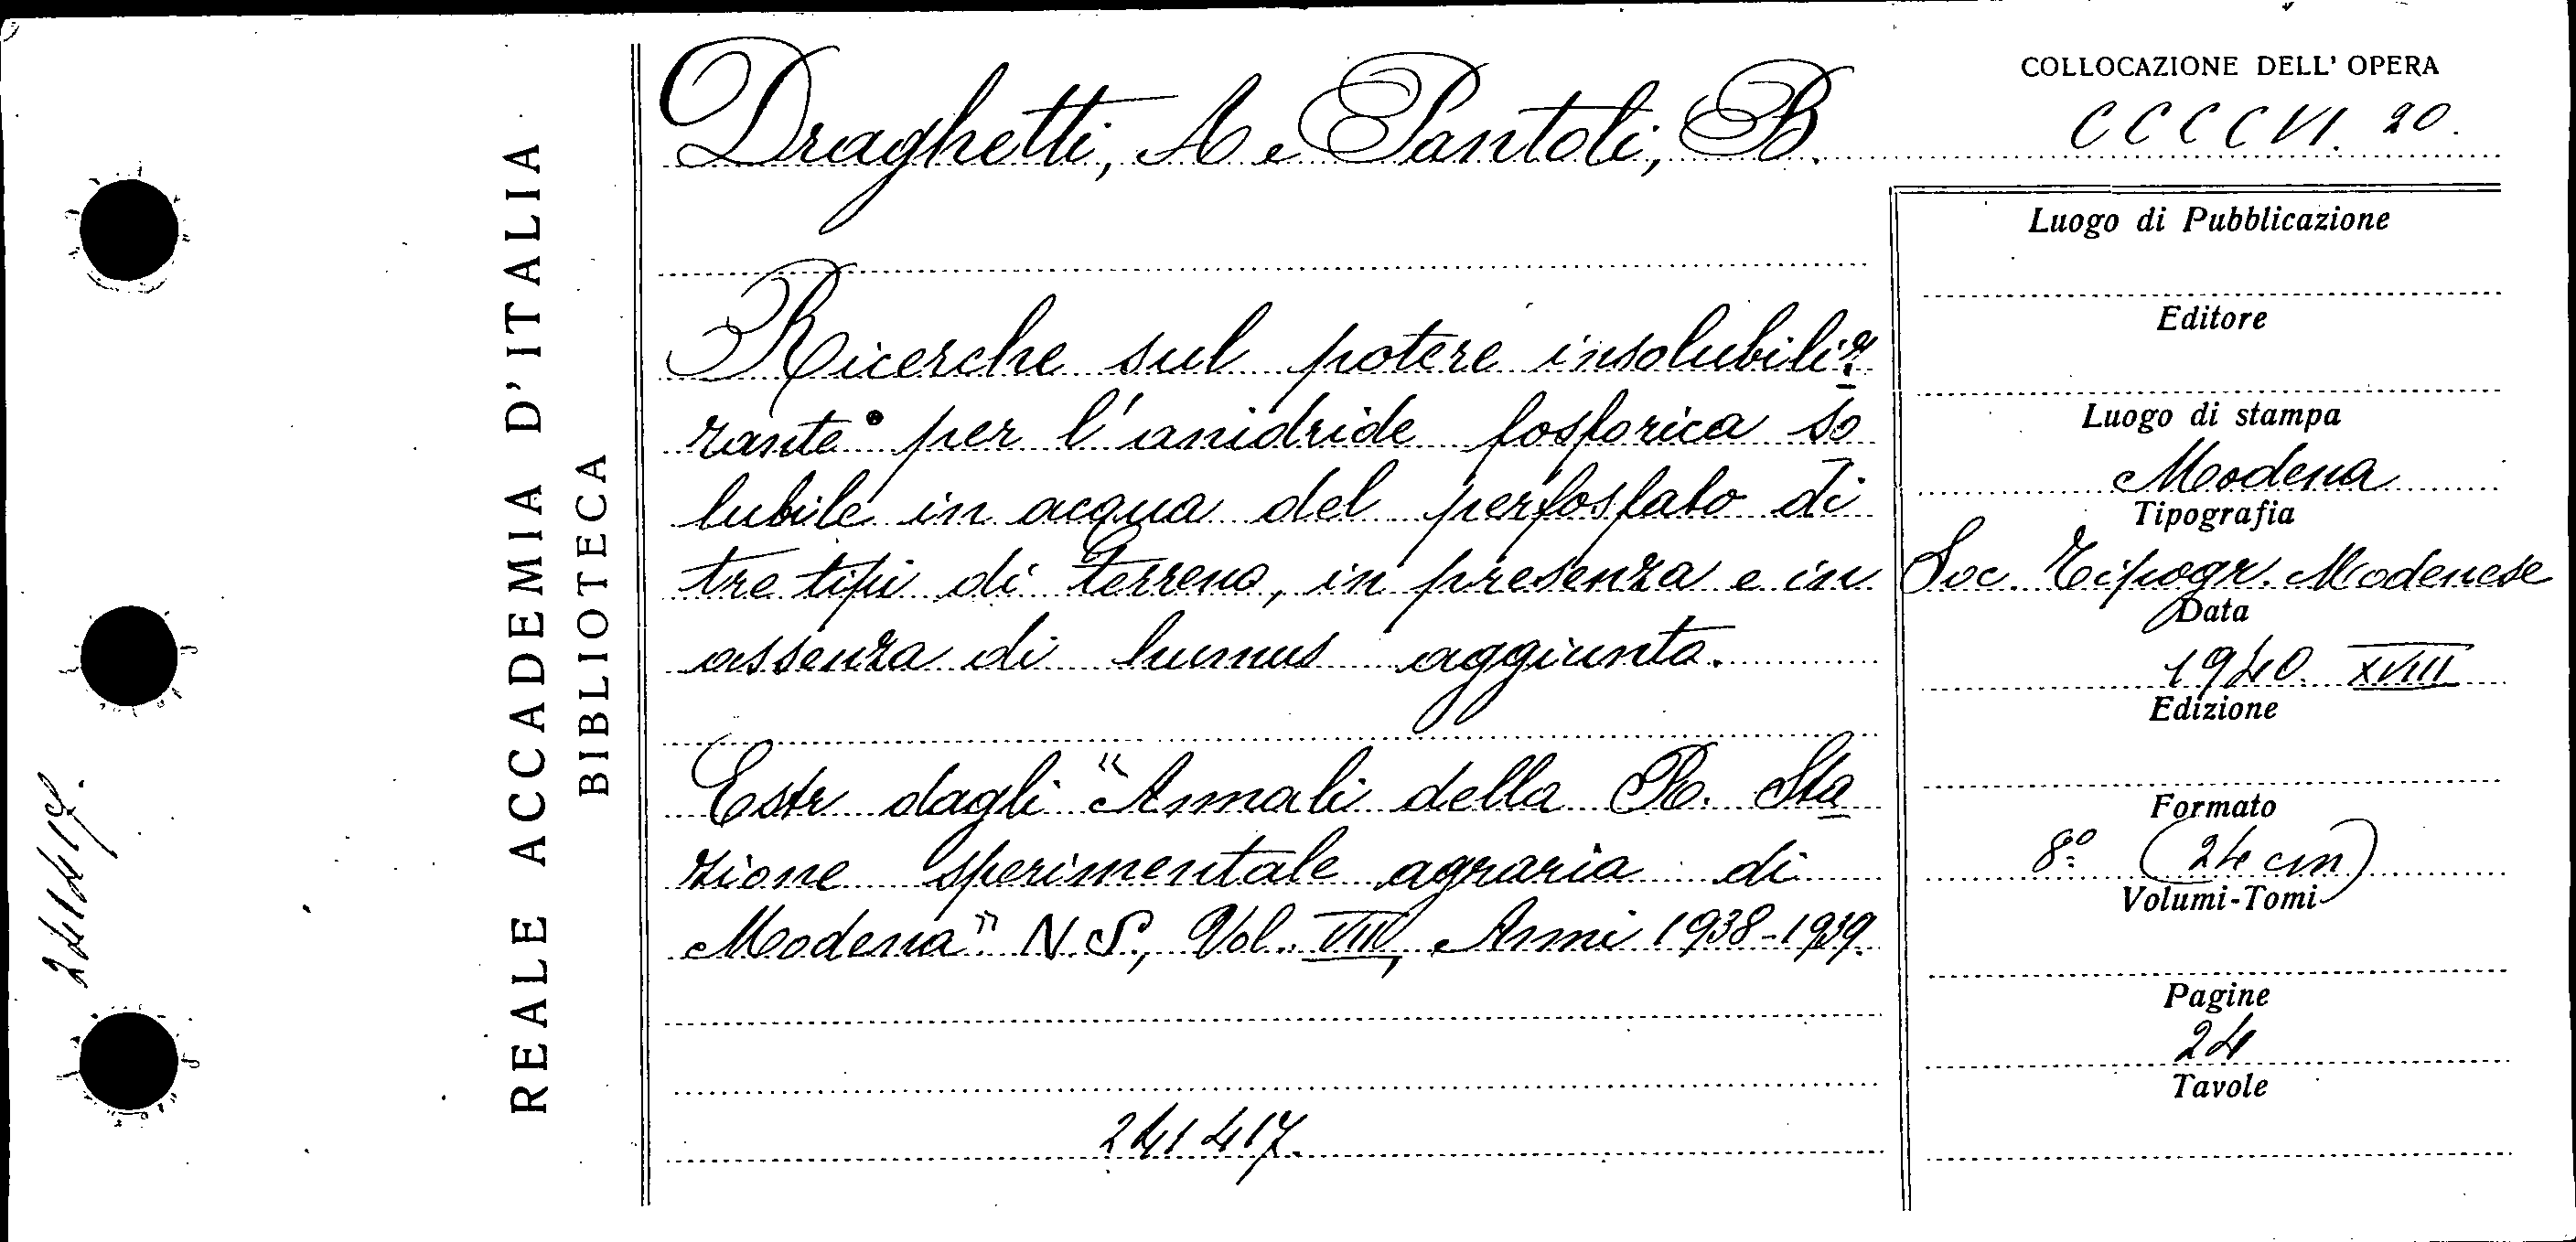 REALE ACCADEMIA D'ITALIA
BIBLIOTECA
241417.
Draghetti, A. e Pantoli, B.
Ricerche sul potere insolubiliz
zante per l'anidride fosforica so
lubile in acqua del perfosfato di
tre tipi di terreno, in presenza e in
assenza di humus aggiunto.
Estr dagli "Annali della R. Sta
zione sperimentale agraria di
Modena" N.S., Vol. VIII, Anni 1938-1939.
241417.
COLLOCAZIONE DELL' OPERA
CCCCVI. 20.
Luogo di Pubblicazione
Editore
Luogo di stampa
Modena
Tipografia
Soc. Tipogr. Modenese
Data
1940. XVIII
Edizione
Formato
8º (24 cm)
Volumi-Tomi
Pagine
24
Tavole